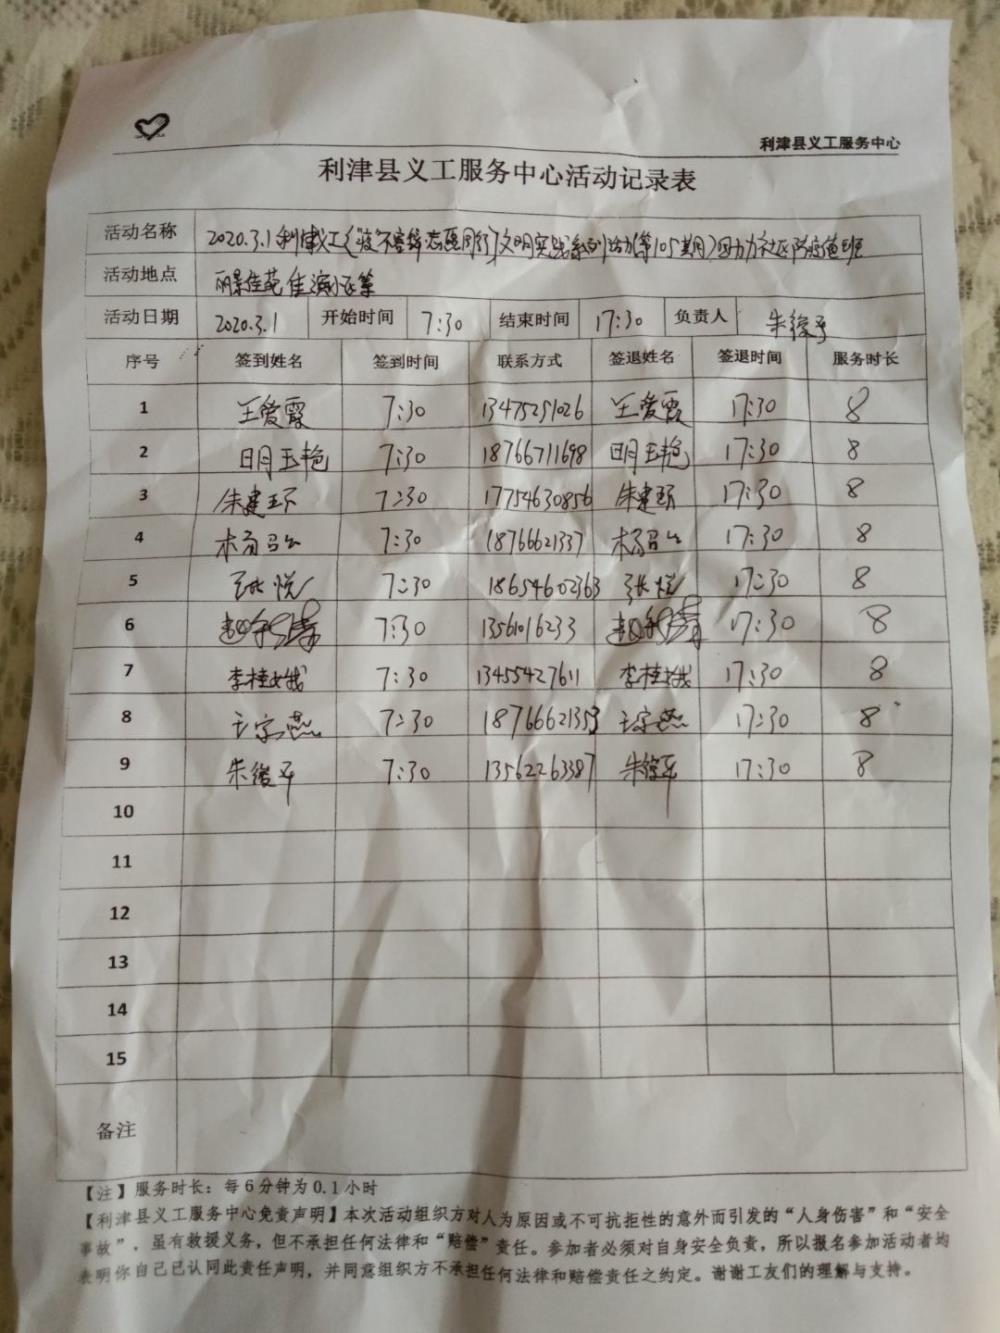 利津县义工服务中心
利津县义工服务中心活动记录表
活动名称 2020.3.1利津义工《疫不容辞 志愿同行》文明实践系列活动(第105期)助力社区防疫值班
活动地点 丽景佳苑 佳滨小区等
活动日期 2020.3.1 开始时间 7:30 结束时间 17:30 负责人 朱俊平
序号 签到姓名 签到时间 联系方式 签退姓名 签退时间 服务时长
1 王爱霞 7:30 13475251026 王爱霞 17:30 8
2 明玉艳 7:30 18766711698 明玉艳 17:30 8
3 朱建环 7:30 17754630856 朱建环 17:30 8
4 7:30 18766621337 17:30 8
5 张悦 7:30 18654602363 张悦 17:30 8
6 7:30 13561016233 17:30 8
7 李桂娥 7:30 13455427611 李桂娥 17:30 8
8 王宗燕 7:30 18766621353 王宗燕 17:30 8
9 朱俊平 7:30 13562263387 朱俊平 17:30 8
10
11
12
13
14
15
备注
【注】服务时长：每6分钟为0.1小时
【利津县义工服务中心免责声明】本次活动组织方对人为原因或不可抗拒性的意外而引发的“人身伤害”和“安全
事故”，虽有救援义务，但不承担任何法律和“赔偿”责任。参加者必须对自身安全负责，所以报名参加活动者均
表明你自己已认同此责任声明，并同意组织方不承担任何法律和赔偿责任之约定。谢谢工友们的理解与支持。